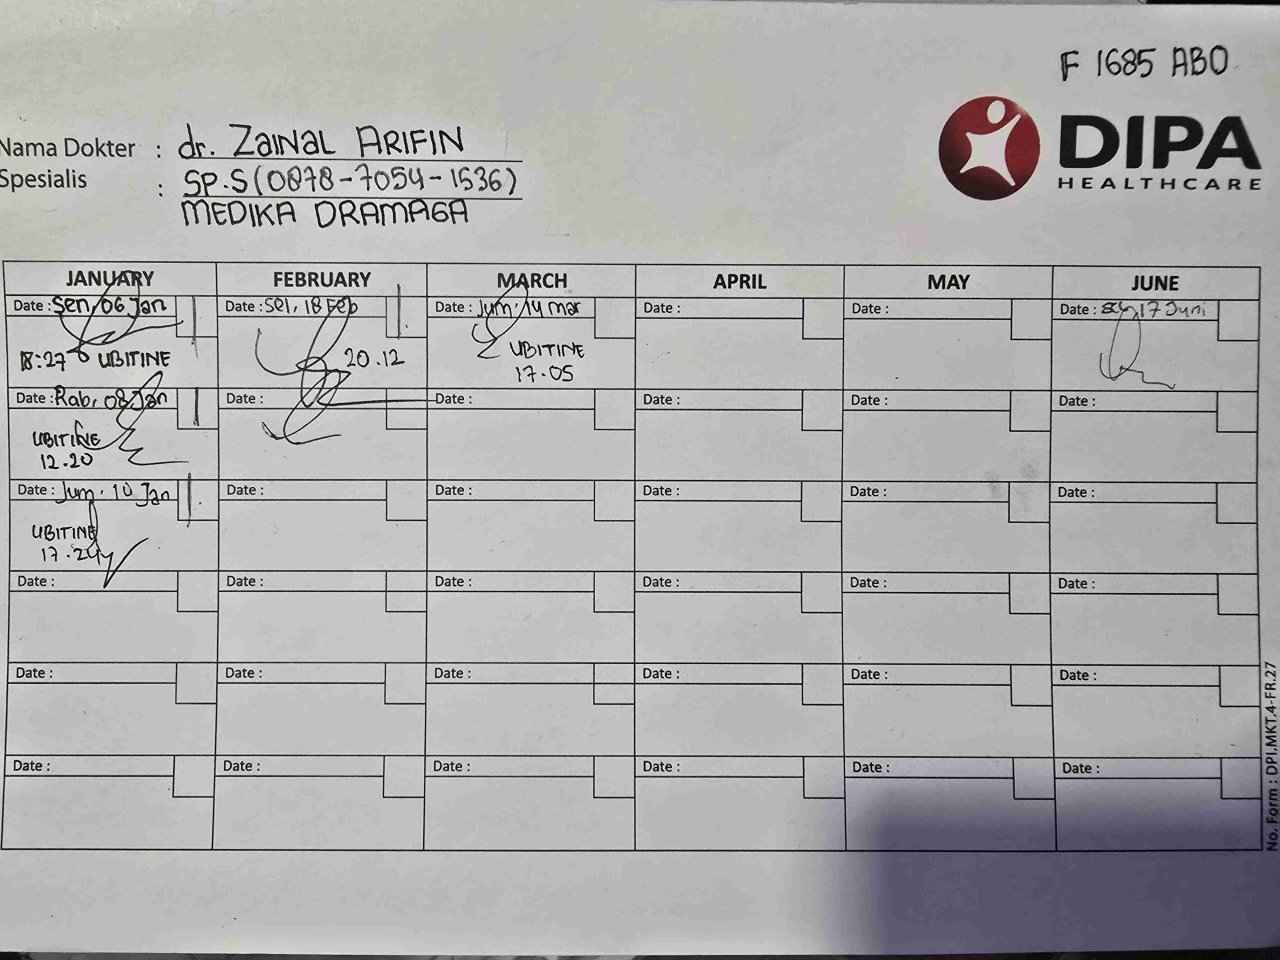 F 1685 ABO
DIPA
HEALTHCARE
Nama Dokter : dr. ZAINAL ARIFIN
Spesialis : SP.S (0878-7054-1536)
MEDIKA DRAMAGA
JANUARY FEBRUARY MARCH APRIL MAY JUNE
Date : Sen, 06 Jan Date : Sel, 18 Feb Date : Jum, 14 Mar Date : Date : Date : 17 Juni
18:27 UBITINE 20.12 UBITINE
17.05
Date : Rab, 08 Jan Date : Date : Date : Date : Date :
UBITINE
12.20
Date : Jum, 10 Jan Date : Date : Date : Date : Date :
UBITINE
17.24
Date : Date : Date : Date : Date : Date :
Date : Date : Date : Date : Date : Date :
Date : Date : Date : Date : Date : Date :
No. Form : DPI.MKT.4-FR.27